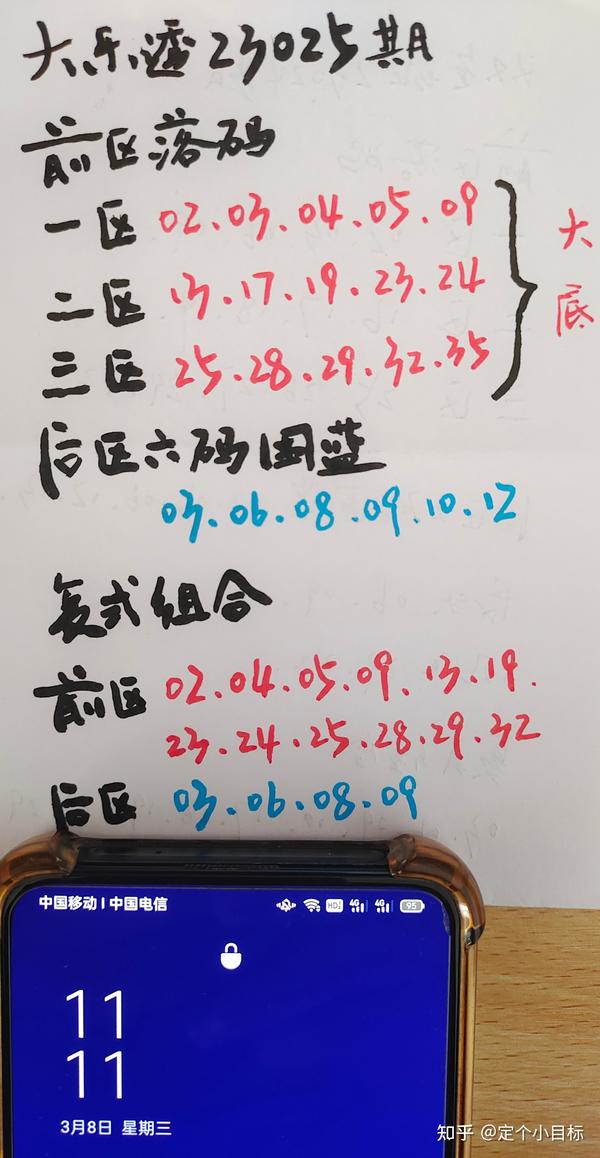 大乐透23025期
前区落码
一区 02.03.04.05.09
二区 13.17.19.23.24
三区 25.28.29.32.35
大底
后区六码围蓝
03.06.08.09.10.12
复式组合
前区 02.04.05.09.13.19.
23.24.25.28.29.32
后区 03.06.08.09
中国移动 | 中国电信
HD 4G 4G 95
11
11
3月8日 星期三
知乎 @定个小目标